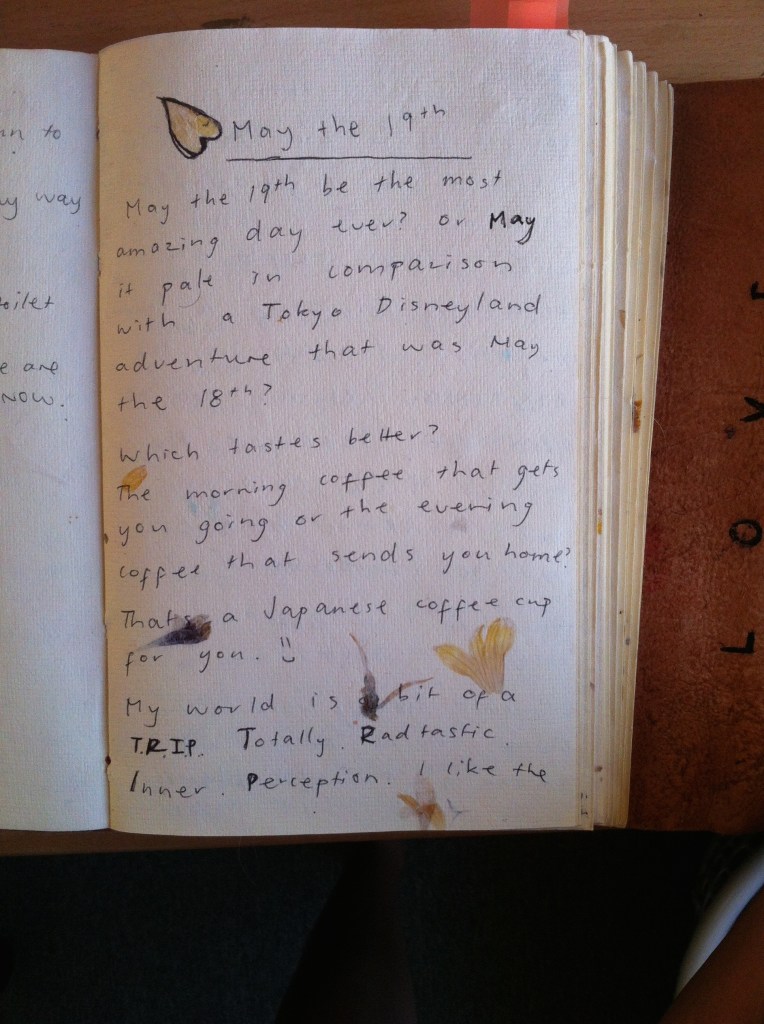 to
way
toilet
are
NOW.
May the 19th
May the 19th be the most
amazing day ever? or May
it pale in comparison
with a Tokyo Disneyland
adventure that was May
the 18th?
Which tastes better?
The morning coffee that gets
you going or the evening
coffee that sends you home?
Thats a Japanese coffee cup
for you. :)
My world is a bit of a
T.R.I.P. Totally. Radtastic.
Inner. Perception. I like the
LOVE